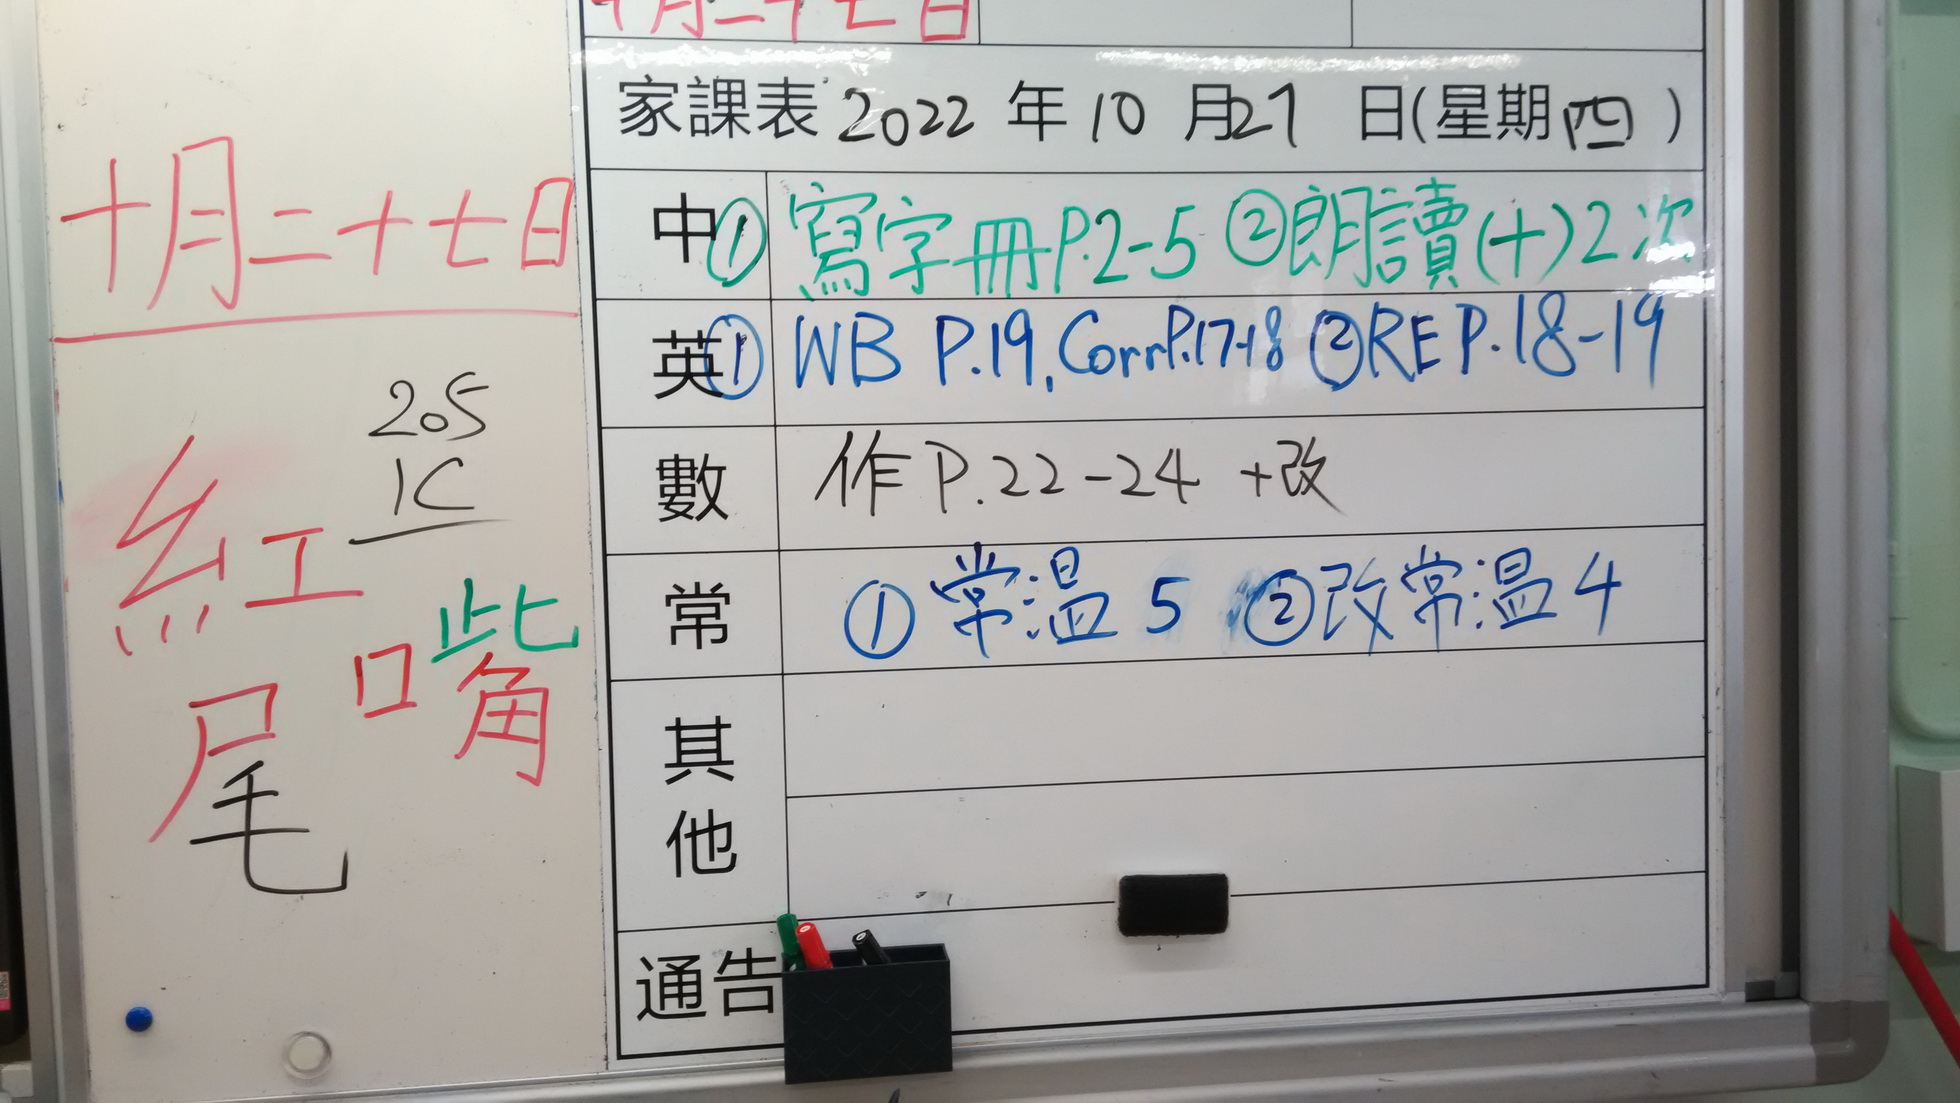 十月二十七日
家課表 2022 年 10 月 27 日(星期四)
中 ① 寫字冊P.2-5 ②朗讀(十)2次
英 ① WB P.19, Corr P.17-18 ②RE P.18-19
數 作 P.22-24 +改
常 ① 常温 5 ②改常温 4
其他
通告
十月二十七日
205
1C
紅 嘴
尾